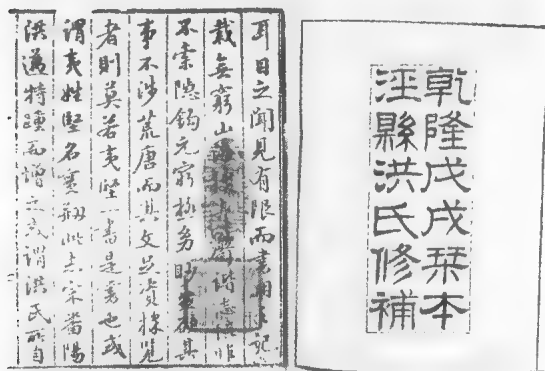 乾隆戊戌栞本
涇縣洪氏修補
耳目之聞見有限而書冊之記
載無窮山海諧志怪非
不索隱鈎元窮極其
事不涉荒唐而其文足資採覽
者則莫若夷堅一書是書也或
謂夷姓堅名此志宋番陽
洪邁特踵而增之或謂洪氏所自